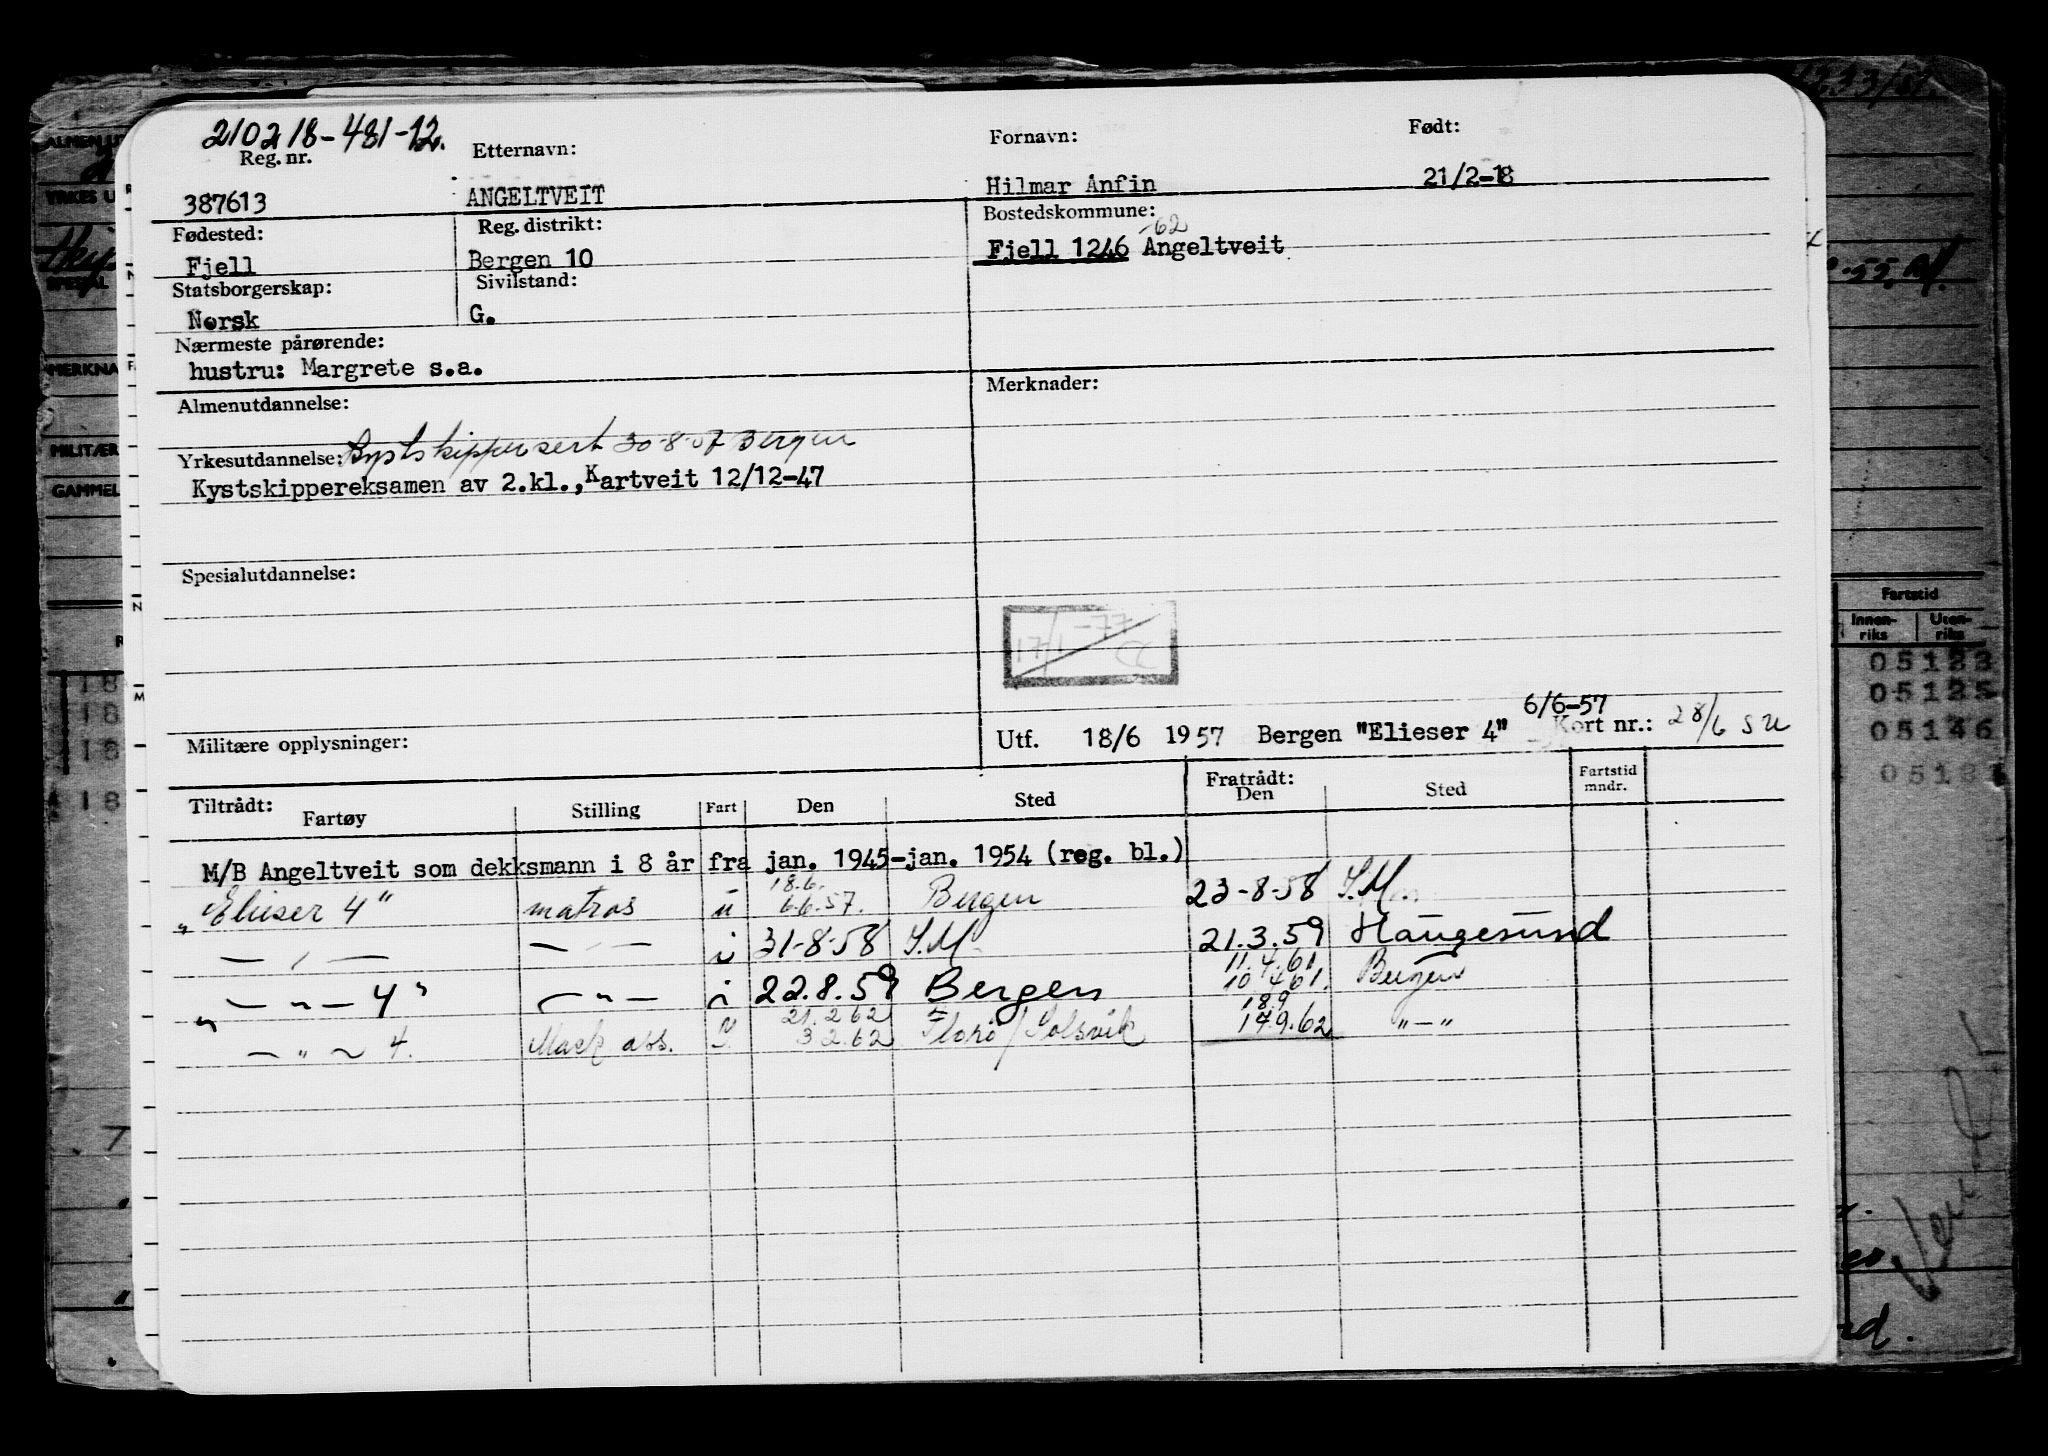 210218-481-12.
Reg. nr. Etternavn: Fornavn: Født:
387613 ANGELTVEIT Hilmar Anfin 21/2-18
Fødested: Reg. distrikt: Bostedskommune:
-62
Fjell Bergen 10 Fjell 1246 Angeltveit
Statsborgerskap: Sivilstand:
Norsk G.
Nærmeste pårørende:
hustru: Margrete s.a.
Almenutdannelse: Merknader:
Yrkesutdannelse: Kystskippersert 30-8-57 Bergen
Kystskippereksamen av 2.kl., Kartveit 12/12-47
Spesialutdannelse:
17/1 -77
6/6-57
Militære opplysninger: Utf. 18/6 1957 Bergen "Elieser 4" Kort nr.: 28/6 SU
Tiltrådt: Fratrådt:
Fartøy Stilling Fart Den Sted Den Sted Fartstid mndr.
M/B Angeltveit som dekksmann i 8 år fra jan. 1945-jan. 1954 (reg. bl.)
18.6.
"Elieser 4" matros u 6.6.57. Bergen 23-8-58 S.M.
— " — — " — i 31-8-58 S.M. 21.3.59 Haugesund
11.4.61
— " — 4" — " — i 22.8.59 Bergen 10.4.61. Bergen
21.2.62 18.9
" — " — 4. Mask ass. 3.2.62 Florø/Solsvik 17.9.62 " — "
Fartstid
Innen-riks Uten-riks
05123
05125
05146
MERKNA
MILITÆR
GAMMEL